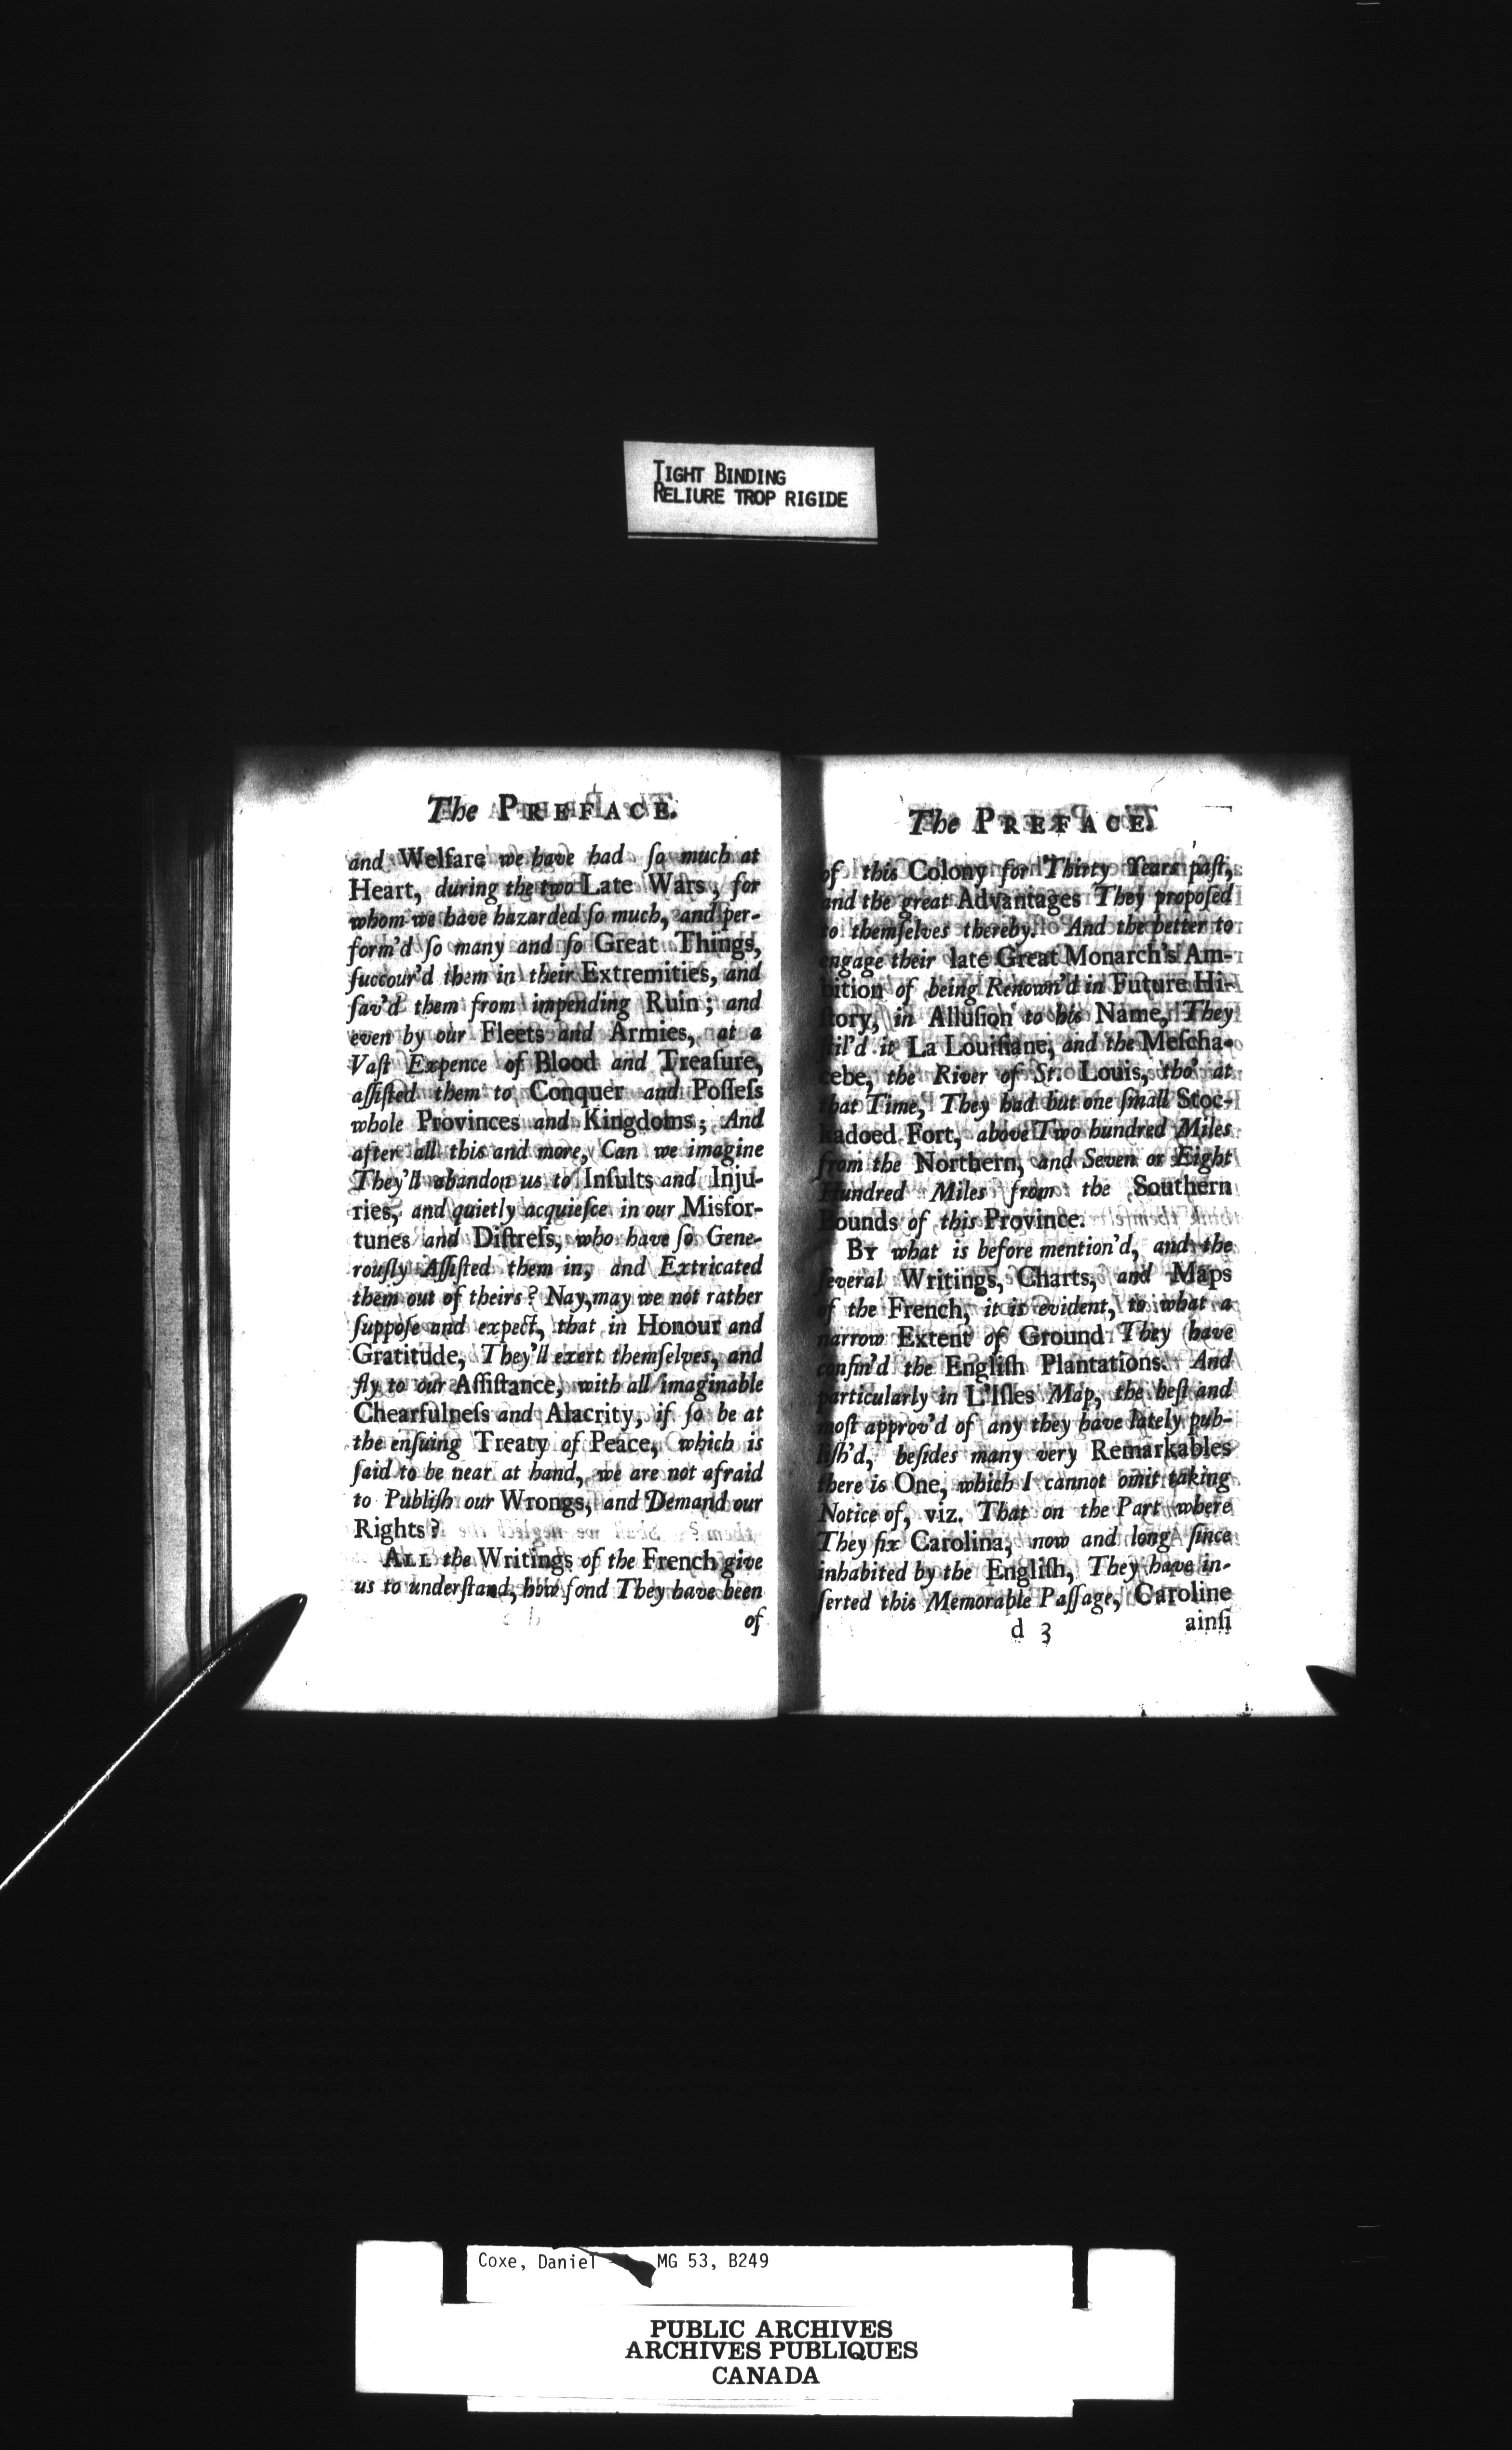 TIGHT BINDING
RELIURE TROP RIGIDE
The PREFACE.
and Welfare we have had ſo much at
Heart, during the two Late Wars, for
whom we have hazarded ſo much, and per-
form'd ſo many and ſo Great Things,
ſuccour'd them in their Extremities, and
ſav'd them from impending Ruin; and
even by our Fleets and Armies, at a
Vaſt Expence of Blood and Treaſure,
aſſiſted them to Conquer and Poſſeſs
whole Provinces and Kingdoms; And
after all this and more, Can we imagine
They'll abandon us to Inſults and Inju-
ries, and quietly acquieſce in our Misfor-
tunes and Diſtreſs, who have ſo Gene-
rouſly Aſſiſted them in, and Extricated
them out of theirs? Nay, may we not rather
ſuppoſe and expect, that in Honour and
Gratitude, They'll exert themſelves, and
fly to our Aſſiſtance, with all imaginable
Chearfulneſs and Alacrity, if ſo be at
the enſuing Treaty of Peace, which is
ſaid to be near at hand, we are not afraid
to Publiſh our Wrongs, and Demand our
Rights?
ALL the Writings of the French give
us to underſtand, how fond They have been
of
The PREFACE.
of this Colony for Thirty Years paſt,
and the great Advantages They propoſed
to themſelves thereby. And the better to
engage their late Great Monarch's Am-
bition of being Renown'd in Future Hi-
ſtory, in Alluſion to his Name, They
ſtil'd it La Louiſiane, and the Meſcha-
cebe, the River of St. Louis, tho' at
that Time, They had but one ſmall Stoc-
kadoed Fort, above Two hundred Miles
from the Northern, and Seven or Eight
Hundred Miles from the Southern
Bounds of this Province.
BY what is before mention'd, and the
ſeveral Writings, Charts, and Maps
of the French, it is evident, to what a
narrow Extent of Ground They have
confin'd the Engliſh Plantations. And
particularly in L'Iſles Map, the beſt and
moſt approv'd of any they have lately pub-
liſh'd, beſides many very Remarkables
there is One, which I cannot omit taking
Notice of, viz. That on the Part where
They fix Carolina, now and long ſince
inhabited by the Engliſh, They have in-
ſerted this Memorable Paſſage, Caroline
d 3 ainſi
Coxe, Daniel MG 53, B249
PUBLIC ARCHIVES
ARCHIVES PUBLIQUES
CANADA